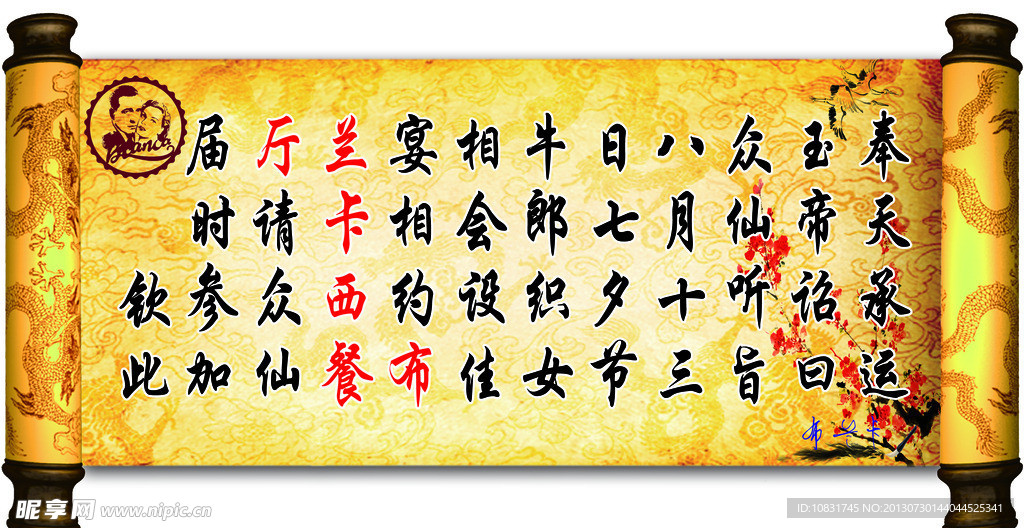 奉天承运
玉帝诏曰
众仙听旨
八月十三
日七夕节
牛郎织女
相会设佳
宴相约布
兰卡西餐
厅请众仙
届时参加
钦此
布兰卡
昵享网 www.nipic.cn
ID:10831745 NO:20130730144044525341